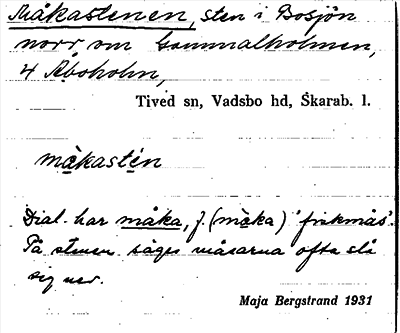 Måkastenen, sten i Bosjön
norr om Gammalholmen,
4 Åboholm,
Tived sn, Vadsbo hd, Skarab. l.
måkastén
Dial. har måka, f. (måka) 'fiskmås'.
På stenen säges måsarna ofta slå
sig ner.
Maja Bergstrand 1931